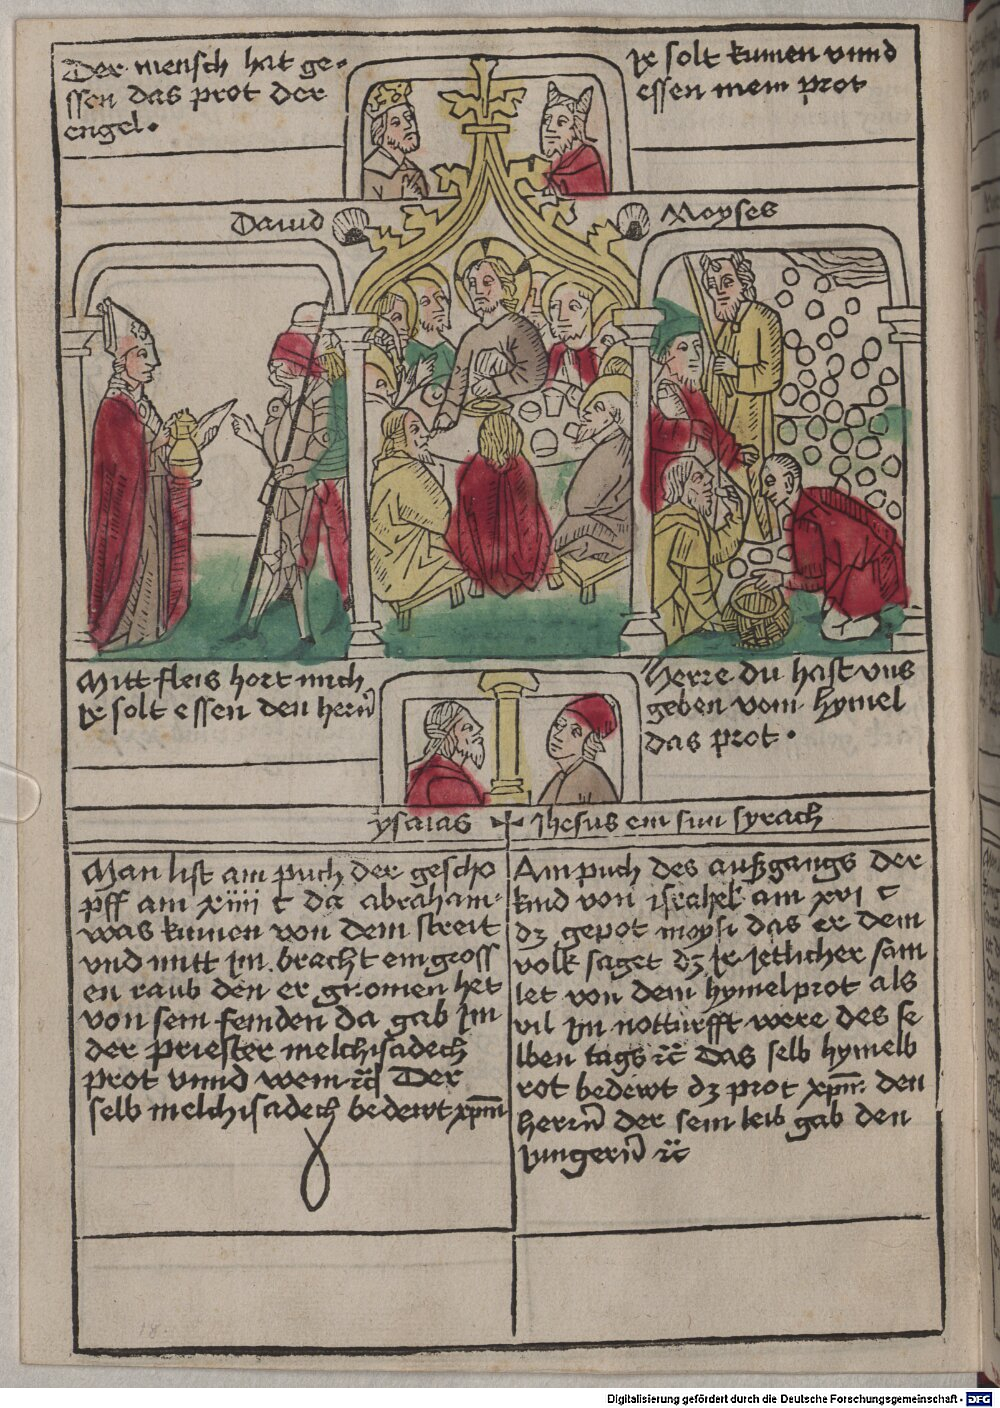 Der mensch hat ge-
ssen das prot der
engel.
Ir solt kumen vnnd
essen mein prot
Dauid
Moyses
Mitt fleis hort mich
Ir solt essen den herñ
Herre du hast vns
geben vom hymel
das prot.
ysaias
Jhesus ein sun syrach
Man list am puch der gescho
pff am xiiii c da abraham
was kumen von dem streit
vnd mitt im bracht ein gross
en raub den er genomen het
von sein feinden da gab im
der priester melchisadech
prot vnnd wein ꝛc̃ Der
selb melchisadech bedewt xp̄m
Am puch des außgangs der
kind von israhel am xvi c
dz gepot moysi das er dem
volk saget dz ir ietlicher sam
let von dem hymelprot als
vil im notturfft were des se
lben tags ꝛc̃ Das selb hymelb
rot bedewt dz prot xp̄m den
herrñ der sein leib gab den
jungerñ ꝛc̃
18
Digitalisierung gefördert durch die Deutsche Forschungsgemeinschaft - DFG